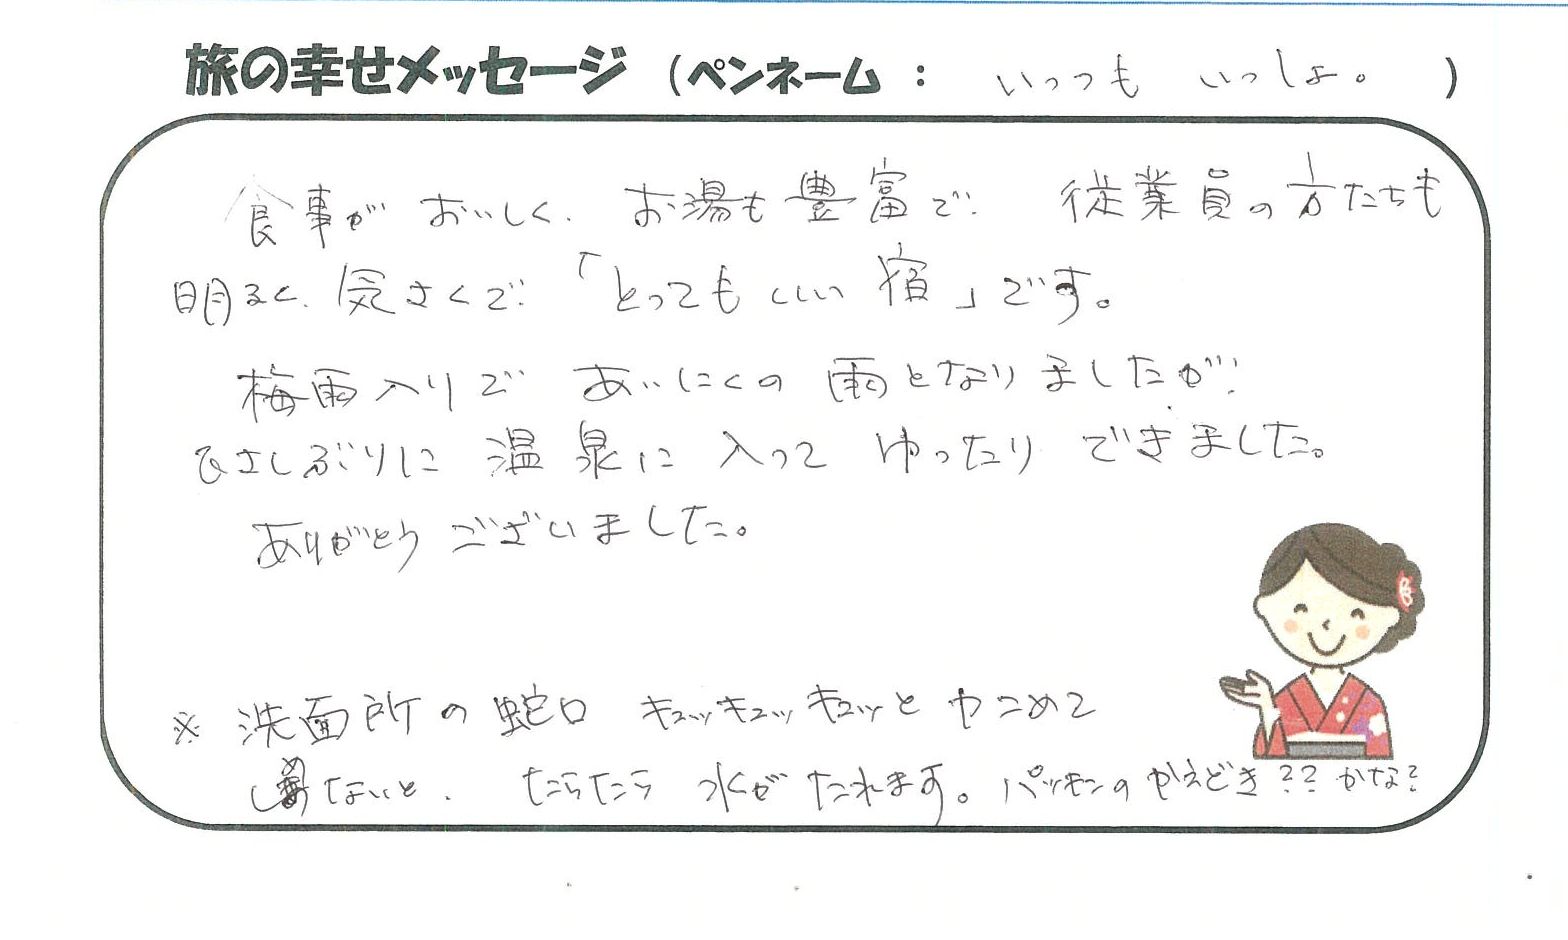 旅の幸せメッセージ (ペンネーム : いっつも いっしょ。 )
食事が おいしく、 お湯も豊富で、 従業員の方たちも
明るく、気さくで、「とってもいい宿」です。
梅雨入りで あいにくの 雨となりましたが、
ひさしぶりに 温泉に 入って ゆったり できました。
ありがとう ございました。
※ 洗面所の 蛇口 キュッキュッキュッと 力こめて
しめないと、 たらたら 水が たれます。パッキンの かえどき?? かな?